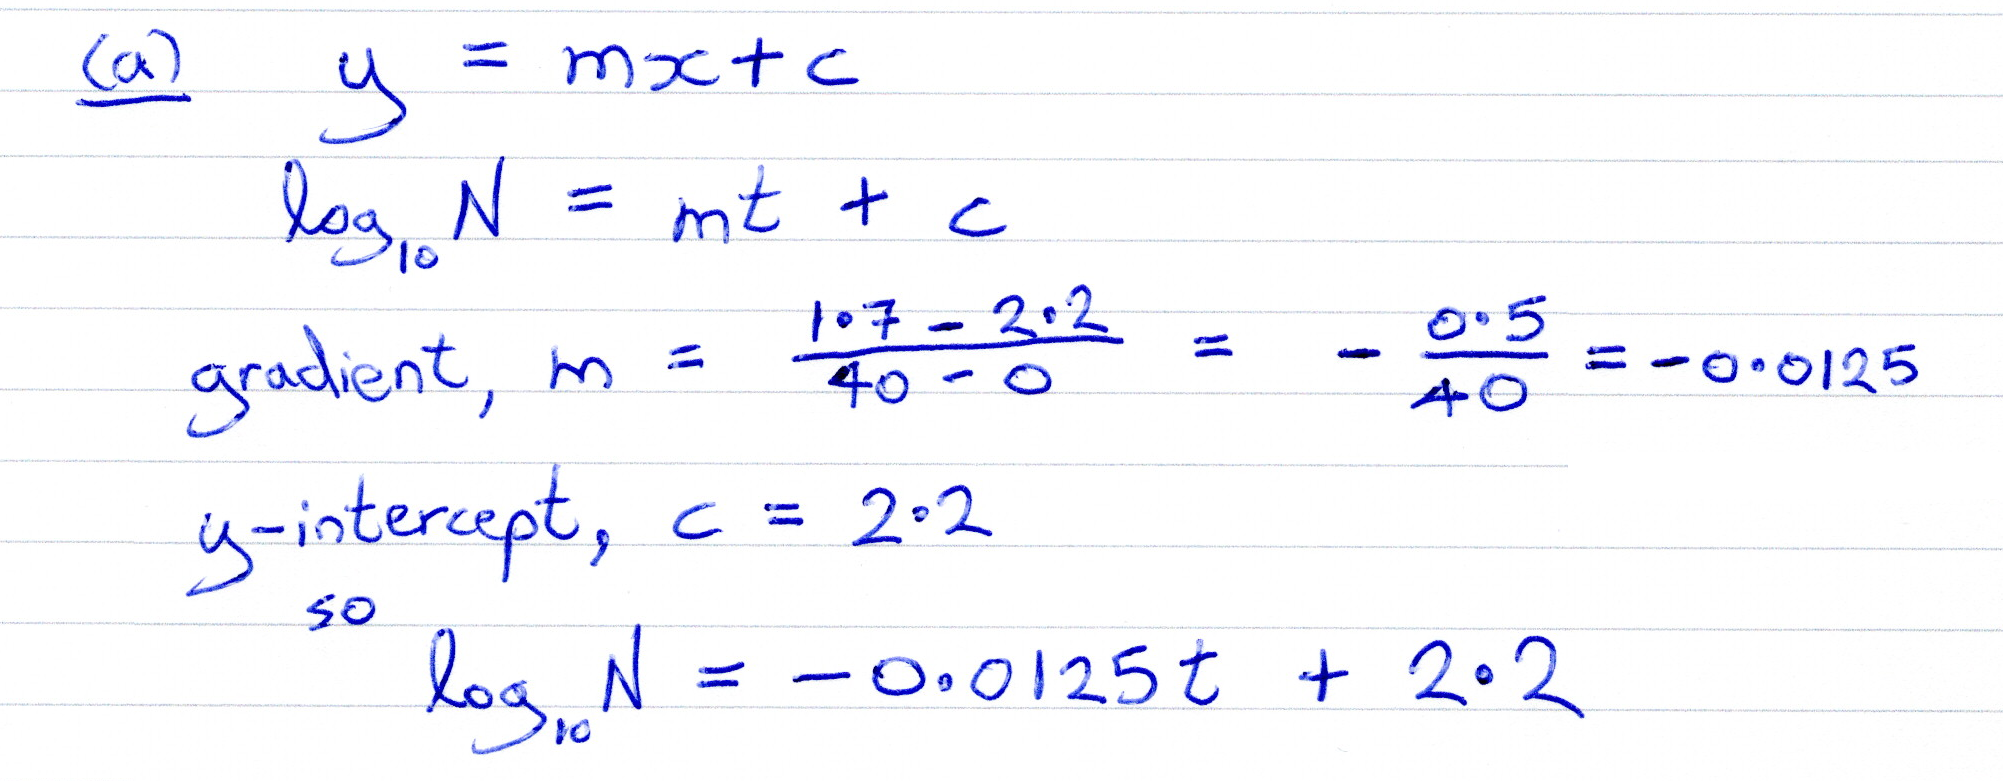 (a) y = mx + c
log₁₀ N = mt + c
gradient, m = (1·7 - 2·2)/(40 - 0) = - 0·5/40 = -0·0125
y-intercept, c = 2·2
so
log₁₀ N = -0·0125t + 2·2